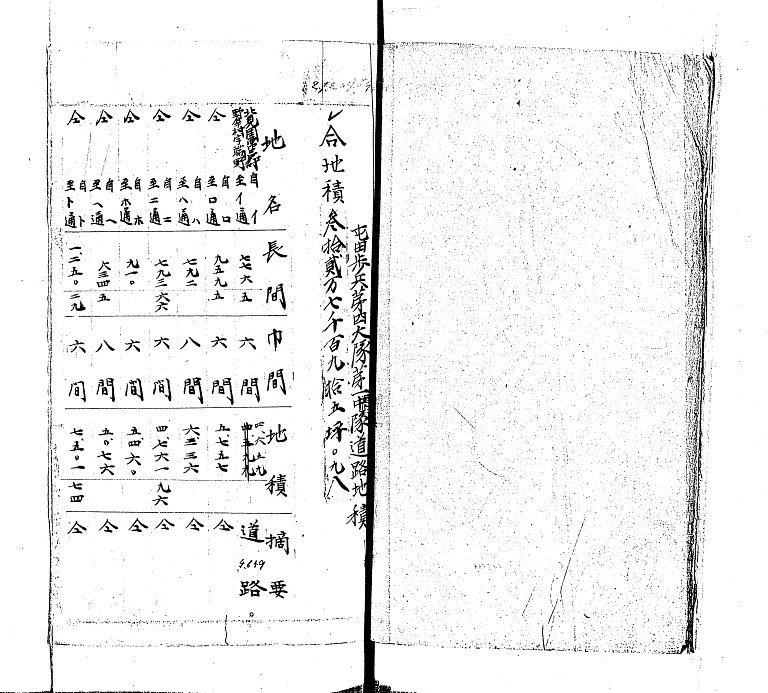 屯田歩兵第四大隊第一中隊道路地積
合地積参拾貳万七千百九拾五坪。九八
地名 長間 巾間 地積 摘要
自イ至イ通 七七六五 六間 四、六五九 道路。
仝 自ロ至ロ通 九五九五 六間 五、七五七 仝
仝 自ハ至ハ通 七九二 八間 六、三三六 仝
仝 自ニ至ニ通 七九三六六 六間 四、七六一九六 仝
仝 自ホ至ホ通 九一〇 六間 五、四六〇 仝
仝 自ヘ至ヘ通 六三四五 八間 五、〇七六 仝
仝 自ト至ト通 一二五〇二九 六间 七、五〇一七四 仝